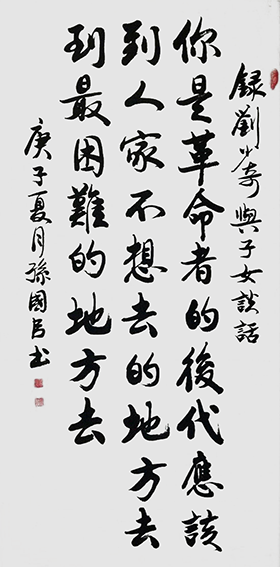 錄劉少奇與子女談話
你是革命者的後代應該
到人家不想去的地方去
到最困難的地方去
庚子夏月孫國
書